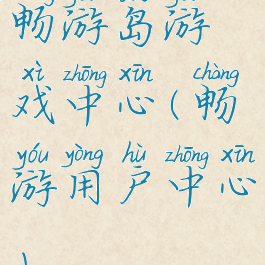 畅游岛游
xì zhōng xīn chàng
戏中心(畅
yóu yòng hù zhōng xīn
游用户中心
)